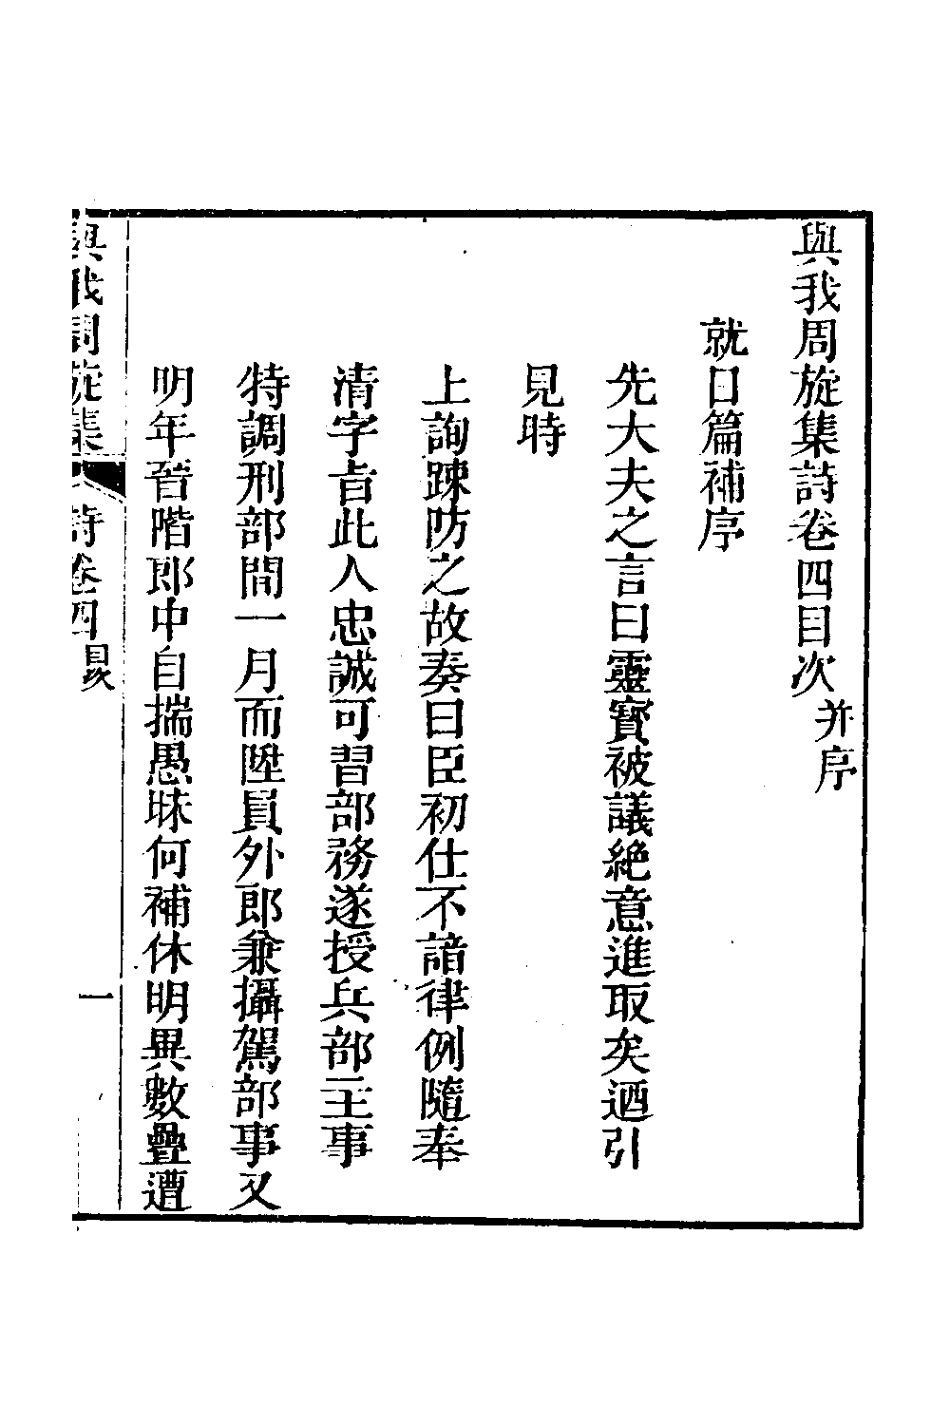 與我周旋集詩卷四目次并序
就日篇補序
先大夫之言曰靈寳被議絶意進取矣迺引
見時
上詢踈防之故奏曰臣初仕不諳律例隨奉
清字㫖此人忠誠可習部務遂授兵部主事
特調刑部間一月而陞員外郎兼攝駕部事又
明年晉階郎中自揣愚昧何補休明異數疊遭
與我周旋集
詩卷四目次
一